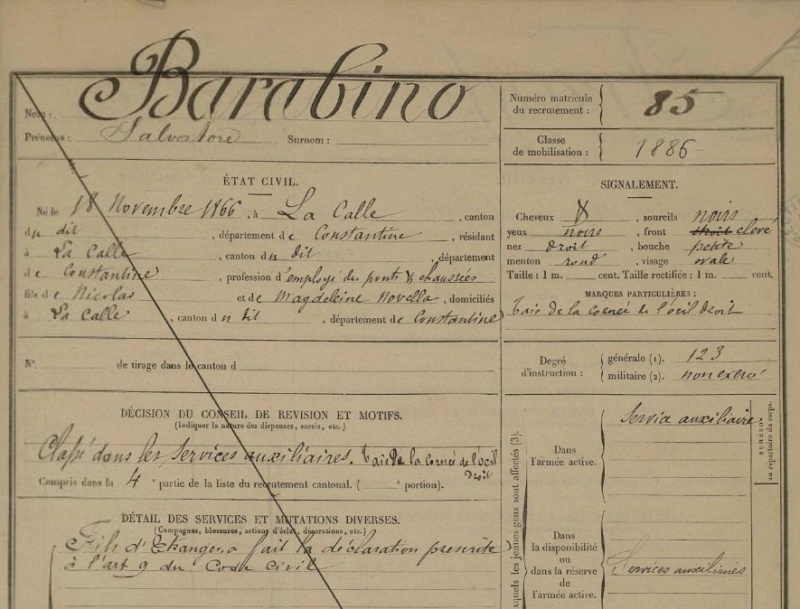 Barabino
Nom :
Prénoms : Salvatore Surnom :
Numéro matricule du recrutement : 85
Classe de mobilisation : 1886
ÉTAT CIVIL.
Né le 18 Novembre 1866, à La Calle, canton
du dit, département de Constantine, résidant
à La Calle, canton du dit, département
de Constantine, profession d'employé des ponts & chaussées
fils de Nicolas et de Magdeleine Novella, domiciliés
à La Calle, canton du dit, département de Constantine
N° de tirage dans le canton d
DÉCISION DU CONSEIL DE REVISION ET MOTIFS.
(Indiquer la nature des dispenses, sursis, etc.)
Classé dans les services auxiliaires. Taie de la Cornée de l'oeil
droit
Compris dans la 4e partie de la liste du recrutement cantonal. ( e portion).
DÉTAIL DES SERVICES ET MUTATIONS DIVERSES.
(Campagnes, blessures, actions d'éclat, décorations, etc.)
Fils d'Etranger, a fait la déclaration prescrite
à l'art 9 du Code Civil
SIGNALEMENT.
Cheveux &, sourcils noirs
yeux noirs, front élevé
nez droit, bouche petite
menton rond, visage ovale
Taille : 1 m. cent. Taille rectifiée : 1 m. cent.
MARQUES PARTICULIÈRES :
Taie de la cornée de l'oeil droit
Degré d'instruction : générale (1). 123
militaire (2). non exercé
Dans l'armée active. Service auxiliaire
Dans la disponibilité ou dans la réserve de l'armée active. Services auxiliaires
xquels les jeunes gens sont affectés (3).
NUMÉROS
au répertoire du corps.